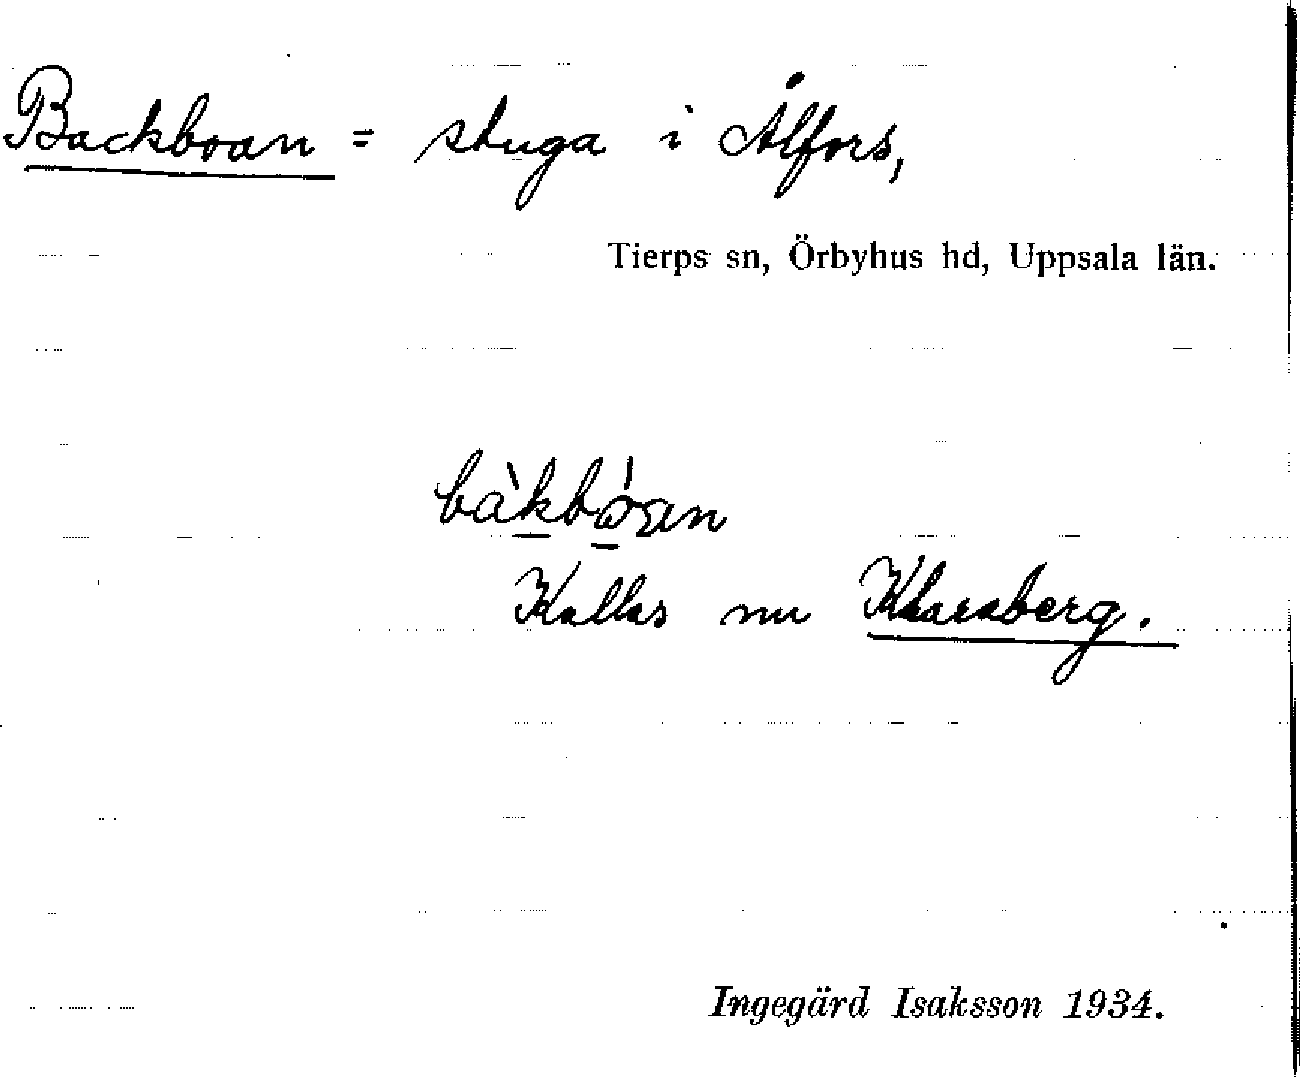 Backboan = stuga i Ålfors,
Tierps sn, Örbyhus hd, Uppsala län.
bàkbóan
Kallas nu Klaraberg.
Ingegärd Isaksson 1934.